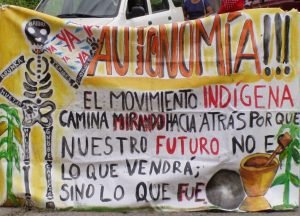 AUTONOMÍA!!!
EL MOVIMIENTO INDÍGENA
CAMINA MIRANDO HACIA ATRÁS POR QUE
NUESTRO FUTURO NO ES
LO QUE VENDRÁ;
SINO LO QUE FUE
YA
YA
YA